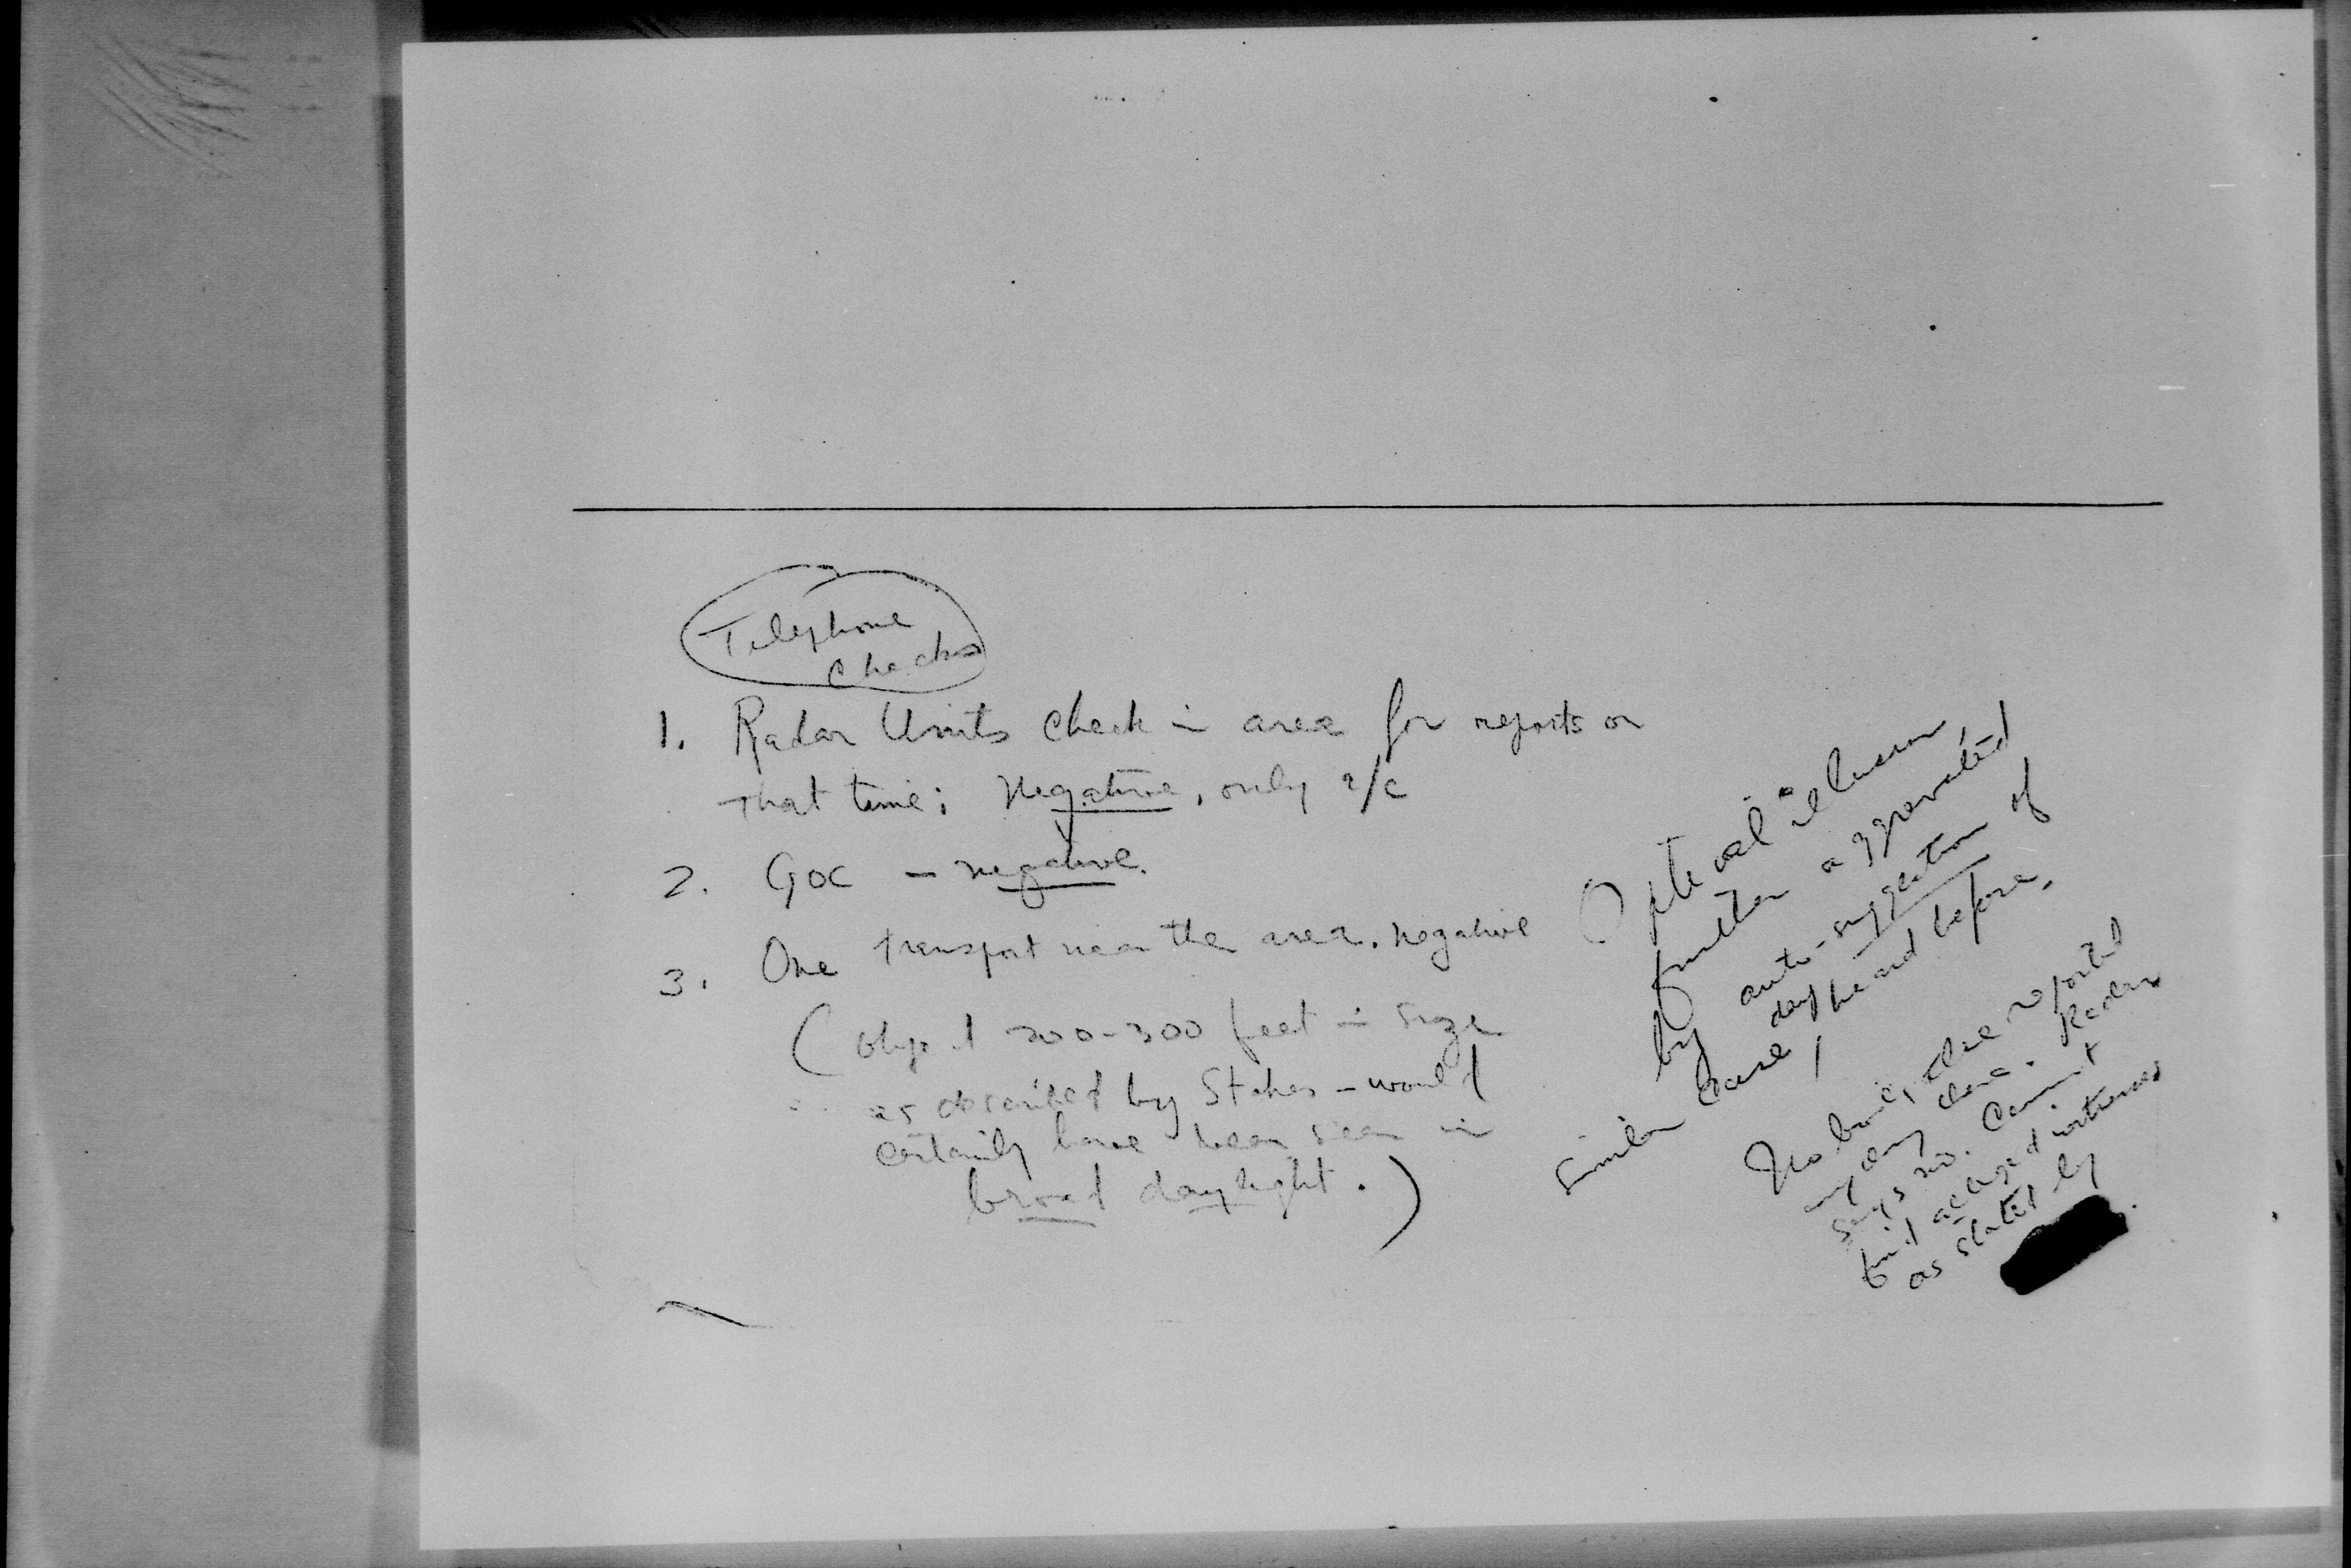 Telephone
Checks
1. Radar Units check in area for reports on
that time; Negative, only a/c
2. GOC – negative.
3. One transport near the area. negative
(object 200-300 feet in size
as described by Stokes – would
certainly have been seen in
broad daylight.)
Optical illusion,
further aggravated
by auto-suggestion of
similar case, day heard before.
No body else reported
any
says no. Cannot
find alleged witnesses
as stated by